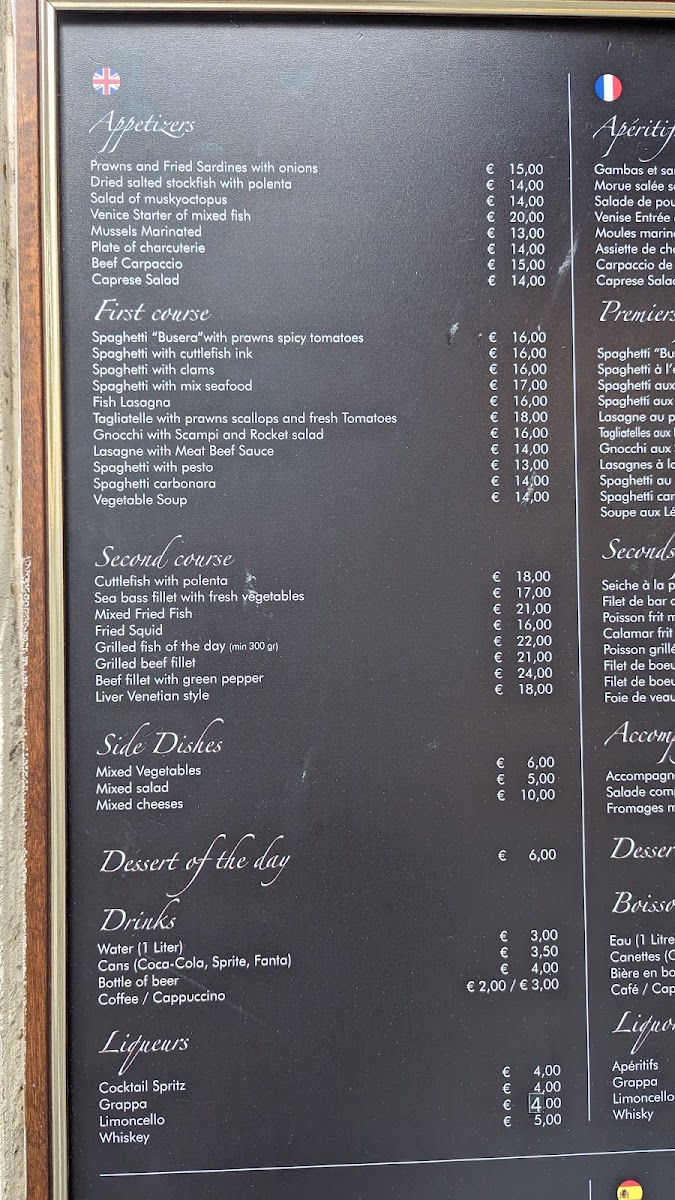 Appetizers
Prawns and Fried Sardines with onions € 15,00
Dried salted stockfish with polenta € 14,00
Salad of muskyoctopus € 14,00
Venice Starter of mixed fish € 20,00
Mussels Marinated € 13,00
Plate of charcuterie € 14,00
Beef Carpaccio € 15,00
Caprese Salad € 14,00
First course
Spaghetti “Busera”with prawns spicy tomatoes € 16,00
Spaghetti with cuttlefish ink € 16,00
Spaghetti with clams € 16,00
Spaghetti with mix seafood € 17,00
Fish Lasagna € 16,00
Tagliatelle with prawns scallops and fresh Tomatoes € 18,00
Gnocchi with Scampi and Rocket salad € 16,00
Lasagne with Meat Beef Sauce € 14,00
Spaghetti with pesto € 13,00
Spaghetti carbonara € 14,00
Vegetable Soup € 14,00
Second course
Cuttlefish with polenta € 18,00
Sea bass fillet with fresh vegetables € 17,00
Mixed Fried Fish € 21,00
Fried Squid € 16,00
Grilled fish of the day (min 300 gr) € 22,00
Grilled beef fillet € 21,00
Beef fillet with green pepper € 24,00
Liver Venetian style € 18,00
Side Dishes
Mixed Vegetables € 6,00
Mixed salad € 5,00
Mixed cheeses € 10,00
Dessert of the day € 6,00
Drinks
Water (1 Liter) € 3,00
Cans (Coca-Cola, Sprite, Fanta) € 3,50
Bottle of beer € 4,00
Coffee / Cappuccino € 2,00 / € 3,00
Liqueurs
Cocktail Spritz € 4,00
Grappa € 4,00
Limoncello € 4,00
Whiskey € 5,00
Apéritif
Gambas et sa
Morue salée s
Salade de pou
Venise Entrée
Moules marin
Assiette de ch
Carpaccio de
Caprese Sala
Premiers
Spaghetti “Bu
Spaghetti à l’
Spaghetti aux
Spaghetti aux
Lasagne au p
Tagliatelles aux
Gnocchi aux
Lasagnes à l
Spaghetti au
Spaghetti car
Soupe aux Lé
Seconds
Seiche à la p
Filet de bar
Poisson frit m
Calamar frit
Poisson grillé
Filet de boeu
Filet de boeu
Foie de veau
Accom
Accompagn
Salade com
Fromages m
Desser
Boisso
Eau (1 Litre
Canettes (C
Bière en bo
Café / Cap
Liquo
Apéritifs
Grappa
Limoncello
Whisky